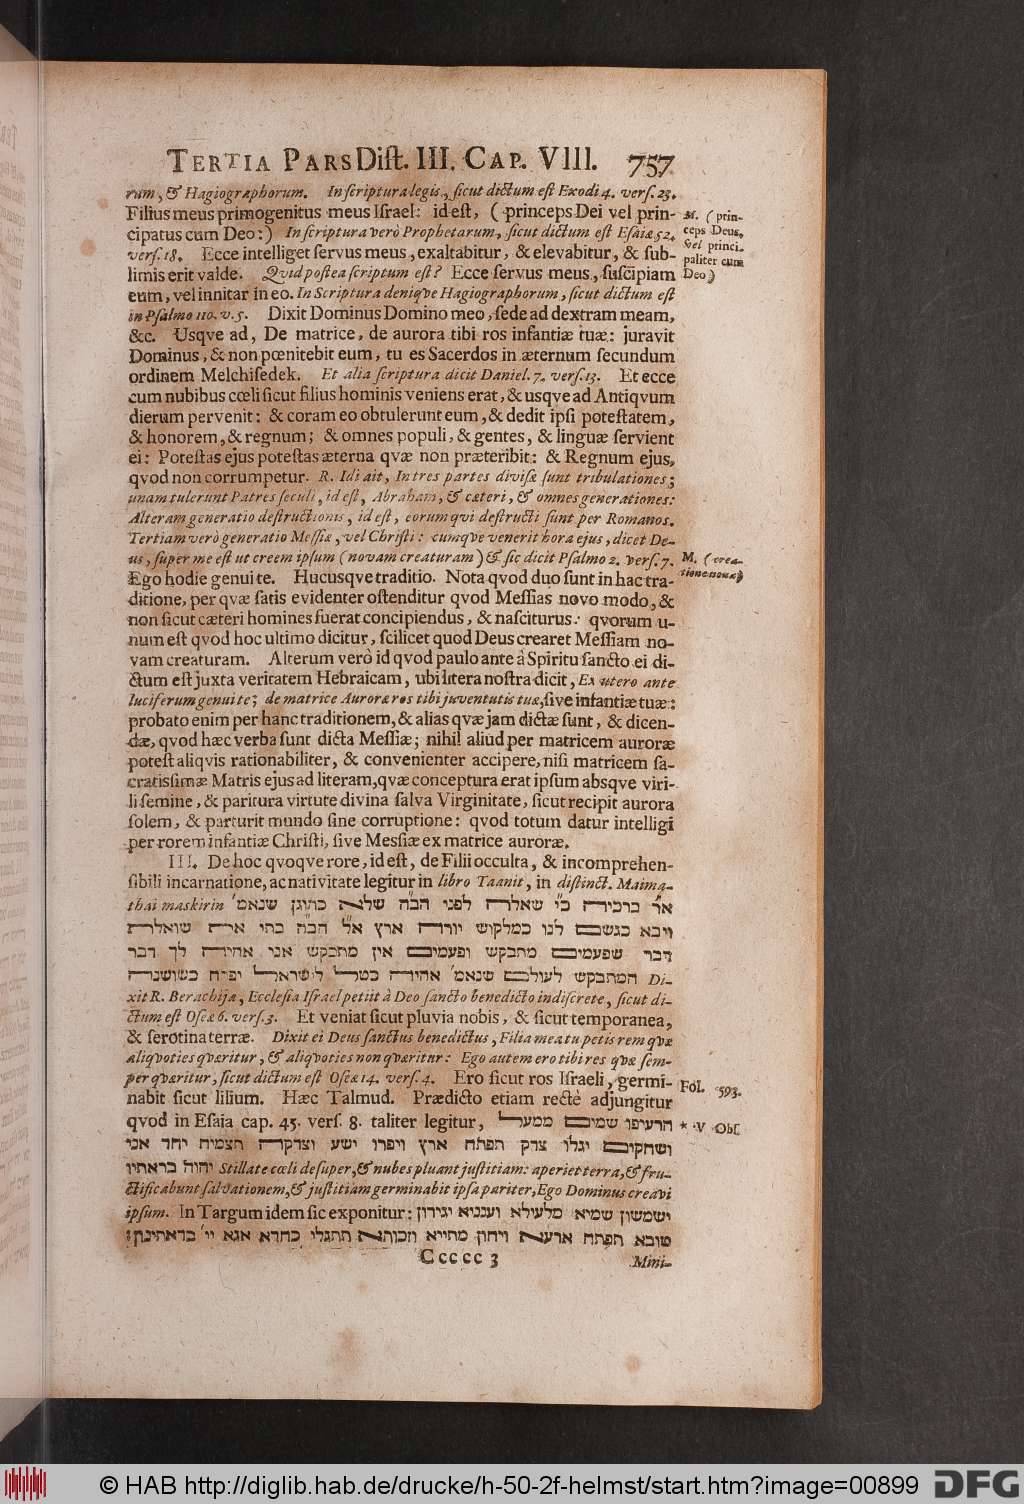 TERTIA PARS Dist. III. CAP. VIII. 757
rum, & Hagiographorum. In scriptura legis, sicut dictum est Exodi 4. vers. 23.
Filius meus primogenitus meus Israel: id est, (princeps Dei vel prin-
cipatus cum Deo:) In scriptura verò Prophetarum, sicut dictum est Esaiæ 52.
vers. 18. Ecce intelliget servus meus, exaltabitur, & elevabitur, & sub-
limis erit valde. Qvid postea scriptum est? Ecce servus meus, suscipiam
eum, vel innitar in eo. In Scriptura deniqve Hagiographorum, sicut dictum est
in Psalmo 110. v. 5. Dixit Dominus Domino meo, sede ad dextram meam,
&c. Usqve ad, De matrice, de aurora tibi ros infantiæ tuæ: juravit
Dominus, & non pœnitebit eum, tu es Sacerdos in æternum secundum
ordinem Melchisedek. Et alia scriptura dicit Daniel. 7. vers. 13. Et ecce
cum nubibus cœli sicut filius hominis veniens erat, & usqve ad Antiqvum
dierum pervenit: & coram eo obtulerunt eum, & dedit ipsi potestatem,
& honorem, & regnum; & omnes populi, & gentes, & linguæ servient
ei: Potestas ejus potestas æterna qvæ non præteribit: & Regnum ejus,
qvod non corrumpetur. R. Idi ait, In tres partes divisæ sunt tribulationes;
unam tulerunt Patres seculi, id est, Abraham, & cæteri, & omnes generationes:
Alteram generatio destructionis, id est, eorum qvi destructi sunt per Romanos.
Tertiam verò generatio Messiæ, vel Christi: cumqve venerit hora ejus, dicet De-
us, super me est ut creem ipsum (novam creaturam) & sic dicit Psalmo 2. vers. 7.
Ego hodie genui te. Hucusqve traditio. Nota qvod duo sunt in hac tra-
ditione, per qvæ satis evidenter ostenditur qvod Messias novo modo, &
non sicut cæteri homines fuerat concipiendus, & nasciturus: qvorum u-
num est qvod hoc ultimo dicitur, scilicet quod Deus crearet Messiam no-
vam creaturam. Alterum verò id qvod paulo ante à Spiritu sancto ei di-
ctum est juxta veritatem Hebraicam, ubi litera nostra dicit, Ex utero ante
luciferum genui te; de matrice Auroræ ros tibi juventutis tuæ, sive infantiæ tuæ:
probato enim per hanc traditionem, & alias qvæ jam dictæ sunt, & dicen-
dæ, qvod hæc verba sunt dicta Messiæ; nihil aliud per matricem auroræ
potest aliqvis rationabiliter, & convenienter accipere, nisi matricem sa-
cratissimæ Matris ejus ad literam, qvæ conceptura erat ipsum absqve viri-
li semine, & paritura virtute divina salva Virginitate, sicut recipit aurora
solem, & parturit mundo sine corruptione: qvod totum datur intelligi
per rorem infantiæ Christi, sive Messiæ ex matrice auroræ.
III. De hoc qvoqve rore, id est, de Filii occulta, & incomprehen-
sibili incarnatione, ac nativitate legitur in libro Taanit, in distinct. Maima-
thai maskirin א״ר ברכיה כ״י שאלה לפני הב״ה שלא כהוגן שנאמ׳
ויבא כגשם לנו כמלקוש יורה ארץ א״ל הב״ה בתי את שואלת
דבר שפעמים מתבקש ופעמים אין מתבקש אני אהיה לך דבר
המתבקש לעולם שנאמ׳ אהיה כטל לישראל יפרח כשושנה Di-
xit R. Berachija, Ecclesia Israel petiit à Deo sancto benedicto indiscrete, sicut di-
ctum est Oseæ 6. vers. 3. Et veniat sicut pluvia nobis, & sicut temporanea,
& serotina terræ. Dixit ei Deus sanctus benedictus, Filia mea tu petis rem qvæ
aliqvoties qværitur, & aliqvoties non qværitur: Ego autem ero tibi res qvæ sem-
per qværitur, sicut dictum est Oseæ 14. vers. 4. Ero sicut ros Israeli, germi-
nabit sicut lilium. Hæc Talmud. Prædicto etiam rectè adjungitur
qvod in Esaia cap. 45. vers. 8. taliter legitur, הרעיפו שמים ממעל
ושחקים יזלו צדק תפתח ארץ ויפרו ישע וצדקה תצמיח יחד אני
יהוה בראתיו Stillate cœli desuper, & nubes pluant justitiam: aperiet terra, & fru-
ctificabunt salvationem, & justitiam germinabit ipsa pariter, Ego Dominus creavi
ipsum. In Targum idem sic exponitur: ישמשון שמיא מלעילא ועננייא יגידון
טובא תפתח ארעא ויחון מתייא וזכותא תתגלי כחדא אנא יי׳ בראתינון:
Ccccc 3
Mini-
M. (prin-
ceps Deus,
vel princi-
paliter cum
Deo)
M. (crea-
tione nova)
Fol. 593.
* V Obs.
© HAB http://diglib.hab.de/drucke/h-50-2f-helmst/start.htm?image=00899 DFG